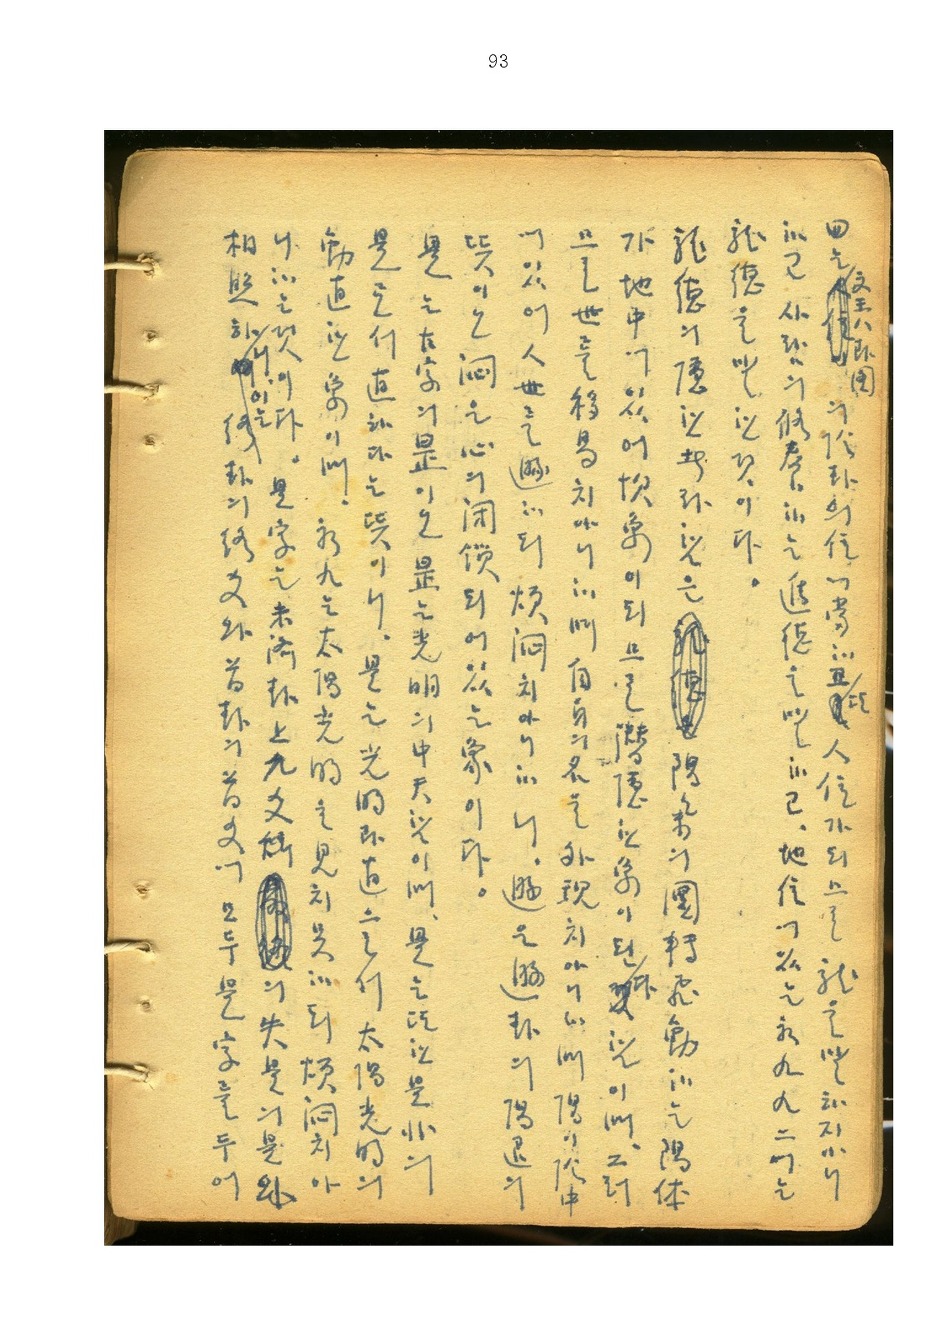 93
文王八卦圖
四는 의 陰卦의 位에 當하고 또 人位가 되므로 龍을 말하지아니
하고 사람의 修養하는 進德을 말하고, 地位에 있는 初九 九二에는
龍德을 말한것이다.
龍德의 隱한 者라 함은 陽氣의 圜轉飛動하는 陽体
가 地中에 있어 坎象이 되므로 潛隱한 象이 된다 함이며, 그리
므로 世를 移易치아니하며 自身의 名을 外現치아니하며 陽이 陰中
에 있어 人世를 遯하되 煩悶치아니하니, 遯은 遯卦의 陽退의
뜻이오 悶은 心의 闭鎖되어있는 象이다.
是는 古字의 昰이오 昰는 光明의 中天함이며, 是는 또한 是非의
是로서 直하다는 뜻이니, 是는 光明正直으로서 太陽光明의
動直한 象이며, 初九는 太陽光明을 見치못하되 煩悶치아
니하는것이다. 是字는 未濟卦上九爻辭 의 失是의 是와
相照하니 이는 終卦의 終爻와 首卦의 首爻에 모두 是字를 두어